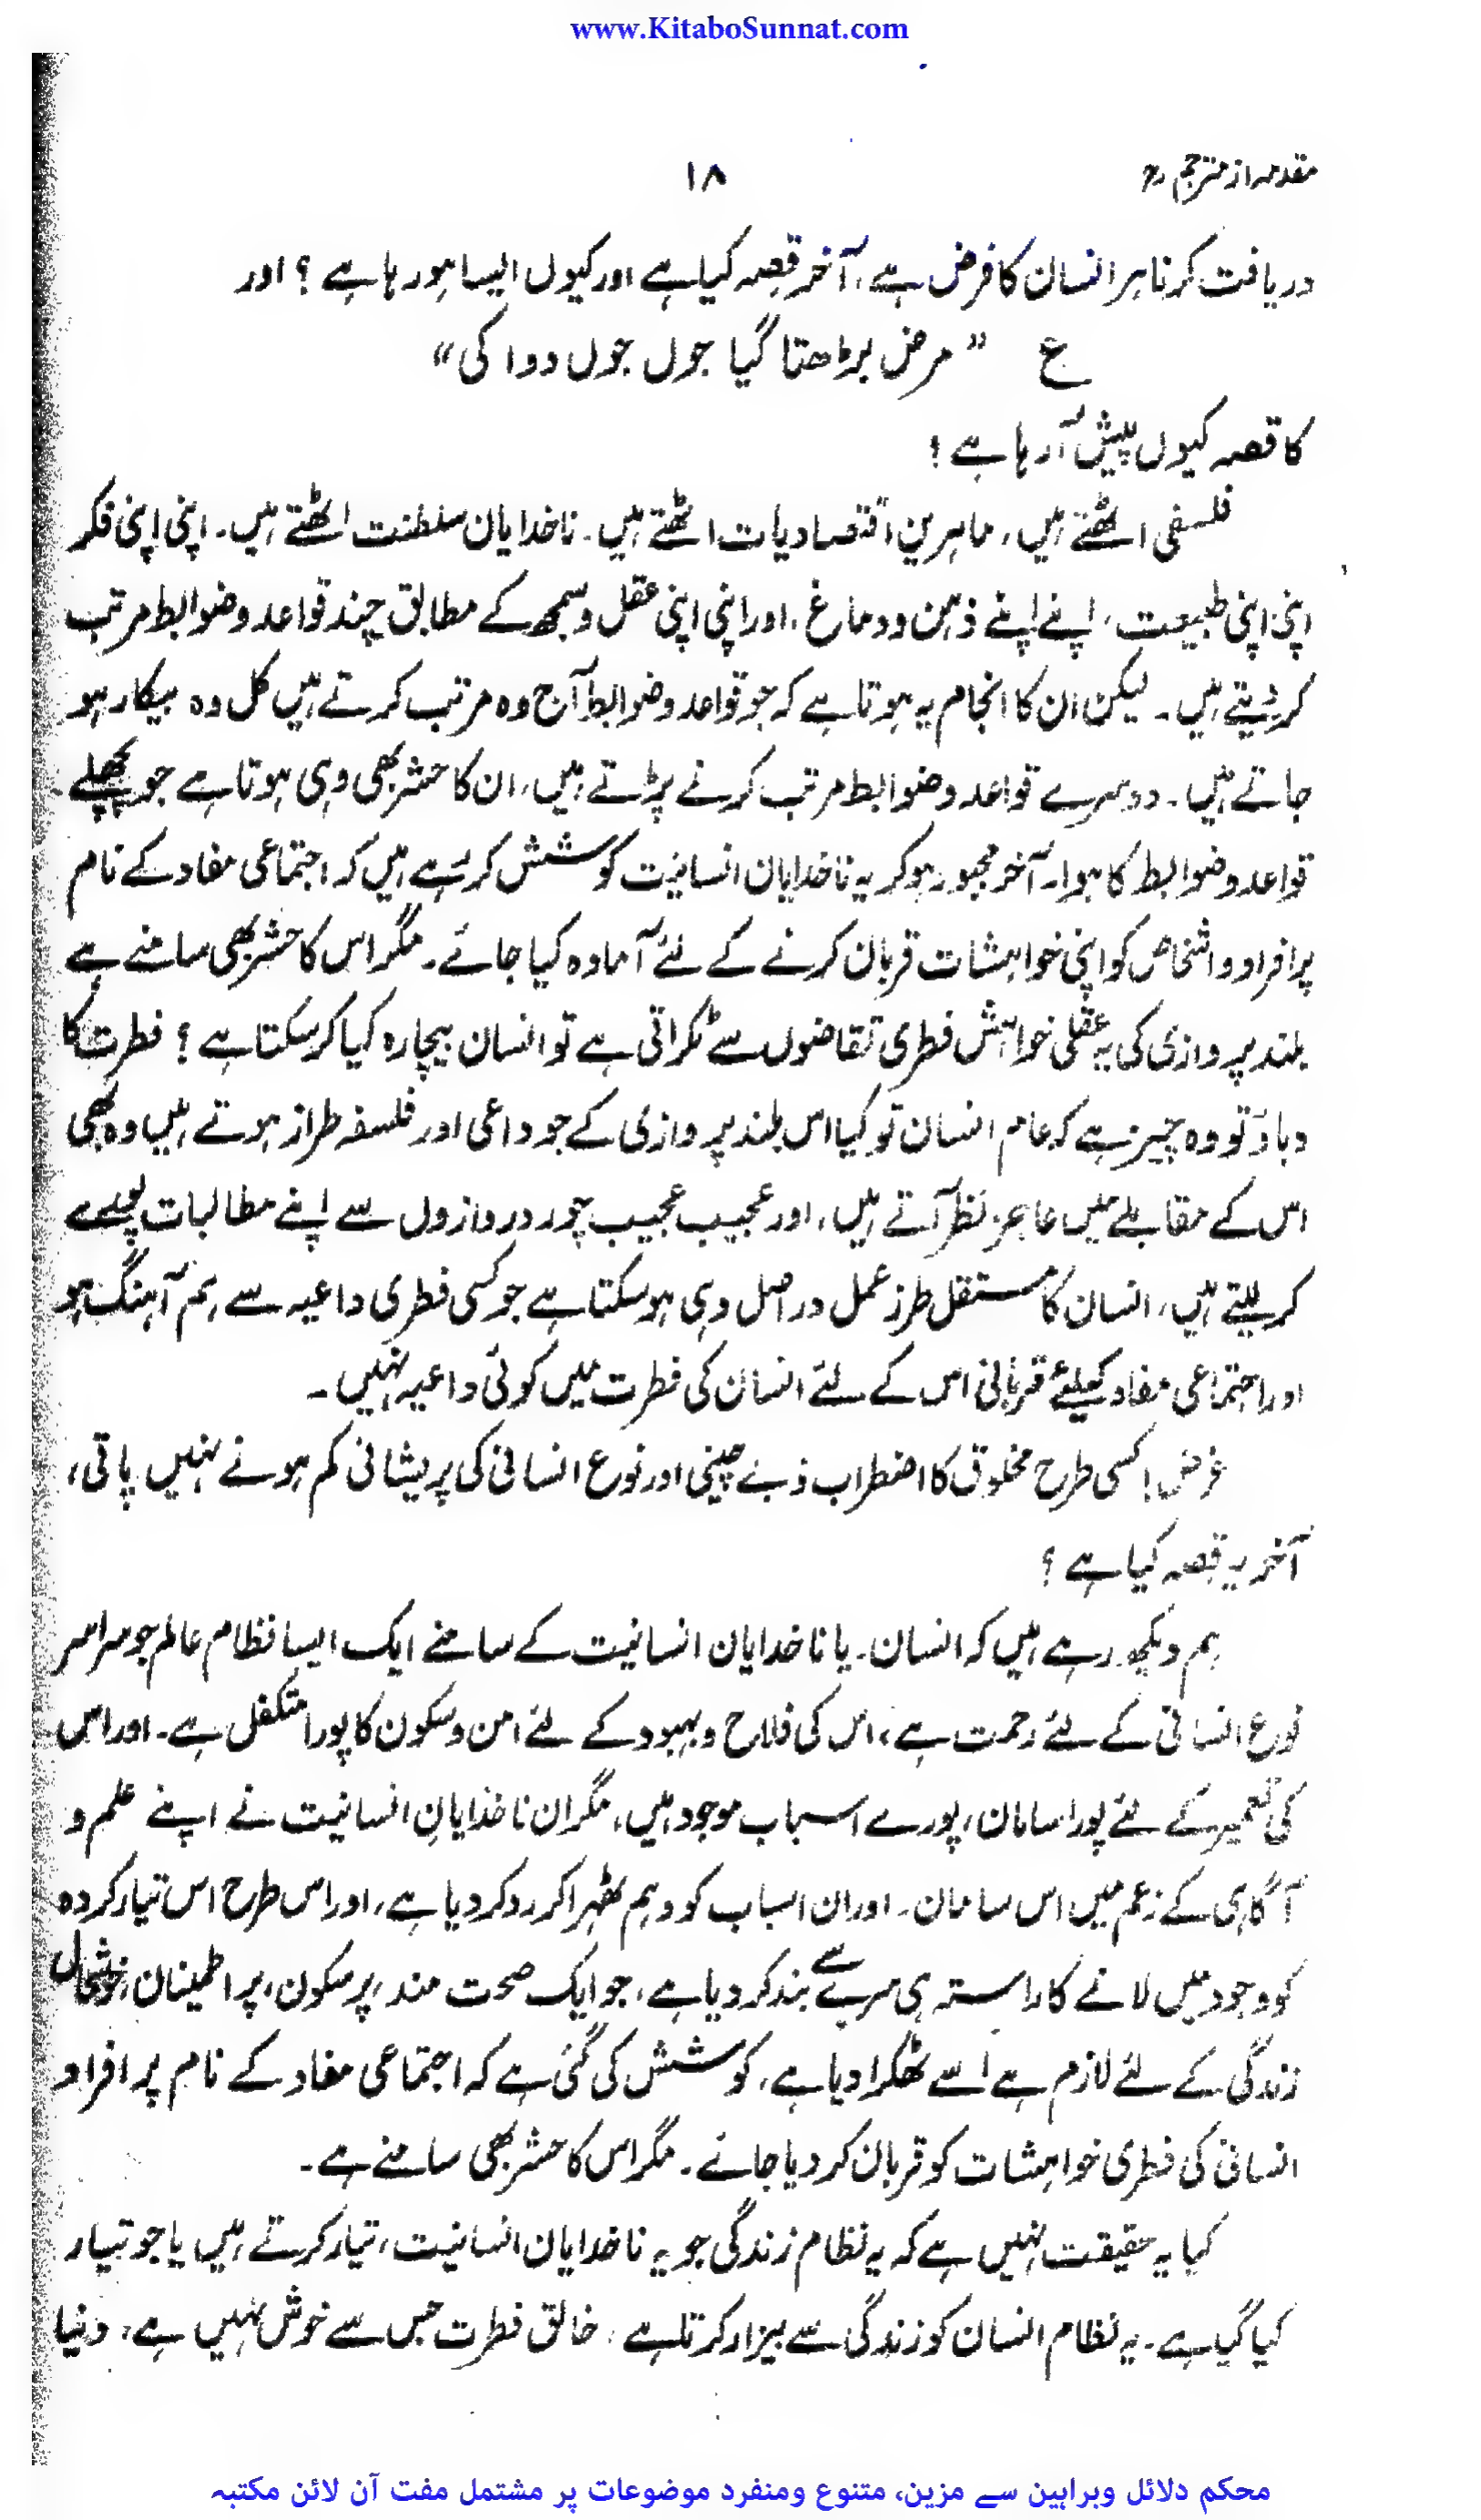 www.KitaboSunnat.com
مقدمہ از مترجم رح
۱۸
دریافت کرنا ہر انسان کا فرض ہے، آخر قصہ کیا ہے اور کیوں ایسا ہو رہا ہے ؟ اور
ع " مرض بڑھتا گیا جوں جوں دوا کی "
کا قصہ کیوں پیش آ رہا ہے ؟
فلسفی اٹھتے ہیں، ماہرین اقتصادیات اٹھتے ہیں۔ ناخدایان سلطنت اٹھتے ہیں۔ اپنی اپنی فکر
اپنی اپنی طبیعت، اپنے اپنے ذہن و دماغ، اور اپنی اپنی عقل و سمجھ کے مطابق چند قواعد و ضوابط مرتب
کر دیتے ہیں۔ لیکن ان کا انجام یہ ہوتا ہے کہ جو قواعد و ضوابط آج وہ مرتب کرتے ہیں کل وہ بیکار ہو
جاتے ہیں۔ دوسرے قواعد و ضوابط مرتب کرنے پڑتے ہیں، ان کا حشر بھی وہی ہوتا ہے جو پچھلے
قواعد و ضوابط کا ہوا۔ آخر مجبور ہو کر یہ ناخدایان انسانیت کوشش کر رہے ہیں کہ اجتماعی مفاد کے نام
پر افراد و اشخاص کو اپنی خواہشات قربان کرنے کے لئے آمادہ کیا جائے۔ مگر اس کا حشر بھی سامنے ہے
بلند پروازی کی یہ عقلی خواہش فطری تقاضوں سے ٹکراتی ہے تو انسان بیچارہ کیا کر سکتا ہے ؟ فطرت کا
دباؤ تو وہ چیز ہے کہ عام انسان تو کیا اس بلند پروازی کے جو داعی اور فلسفہ طراز ہوتے ہیں وہ بھی
اس کے مقابلے میں عاجز نظر آتے ہیں، اور عجیب عجیب چور دروازوں سے اپنے مطالبات پورے
کر لیتے ہیں، انسان کا مستقل طرز عمل دراصل وہی ہو سکتا ہے جو کسی فطری داعیہ سے ہم آہنگ ہو
اور اجتماعی مفاد کیلئے قربانی اس کے لئے انسان کی فطرت میں کوئی داعیہ نہیں۔
غرض! کسی طرح مخلوق کا اضطراب و بے چینی اور نوع انسانی کی پریشانی کم ہونے نہیں پاتی،
آخر یہ قصہ کیا ہے ؟
ہم دیکھ رہے ہیں کہ انسان۔ یا ناخدایان انسانیت کے سامنے ایک ایسا نظام عالم جو سراسر
نوع انسانی کے لئے رحمت ہے، اس کی فلاح و بہبود کے لئے امن و سکون کا پورا متکفل ہے۔ اور اس
کی تعمیر کے لئے پورا سامان، پورے اسباب موجود ہیں، مگر ان ناخدایانِ انسانیت نے اپنے علم و
آگاہی کے زعم میں اس سامان۔ اور ان اسباب کو وہم ٹھہرا کر رد کر دیا ہے، اور اس طرح اس تیار کردہ
کو وجود میں لانے کا راستہ ہی سرے سے بند کر دیا ہے، جو ایک صحت مند، پرسکون، پر اطمینان، خوشحال
زندگی کے لئے لازم ہے اُسے ٹھکرا دیا ہے، کوشش کی گئی ہے کہ اجتماعی مفاد کے نام پر افراد
انسانی کی فطری خواہشات کو قربان کر دیا جائے۔ مگر اس کا حشر بھی سامنے ہے۔
کیا یہ حقیقت نہیں ہے کہ یہ نظام زندگی جو یہ ناخدایان انسانیت، تیار کرتے ہیں یا جو تیار
کیا گیا ہے۔ یہ نظام انسان کو زندگی سے بیزار کرتا ہے، خالق فطرت جس سے خوش نہیں ہے، دنیا
محکم دلائل وبراہین سے مزین، متنوع ومنفرد موضوعات پر مشتمل مفت آن لائن مکتبہ